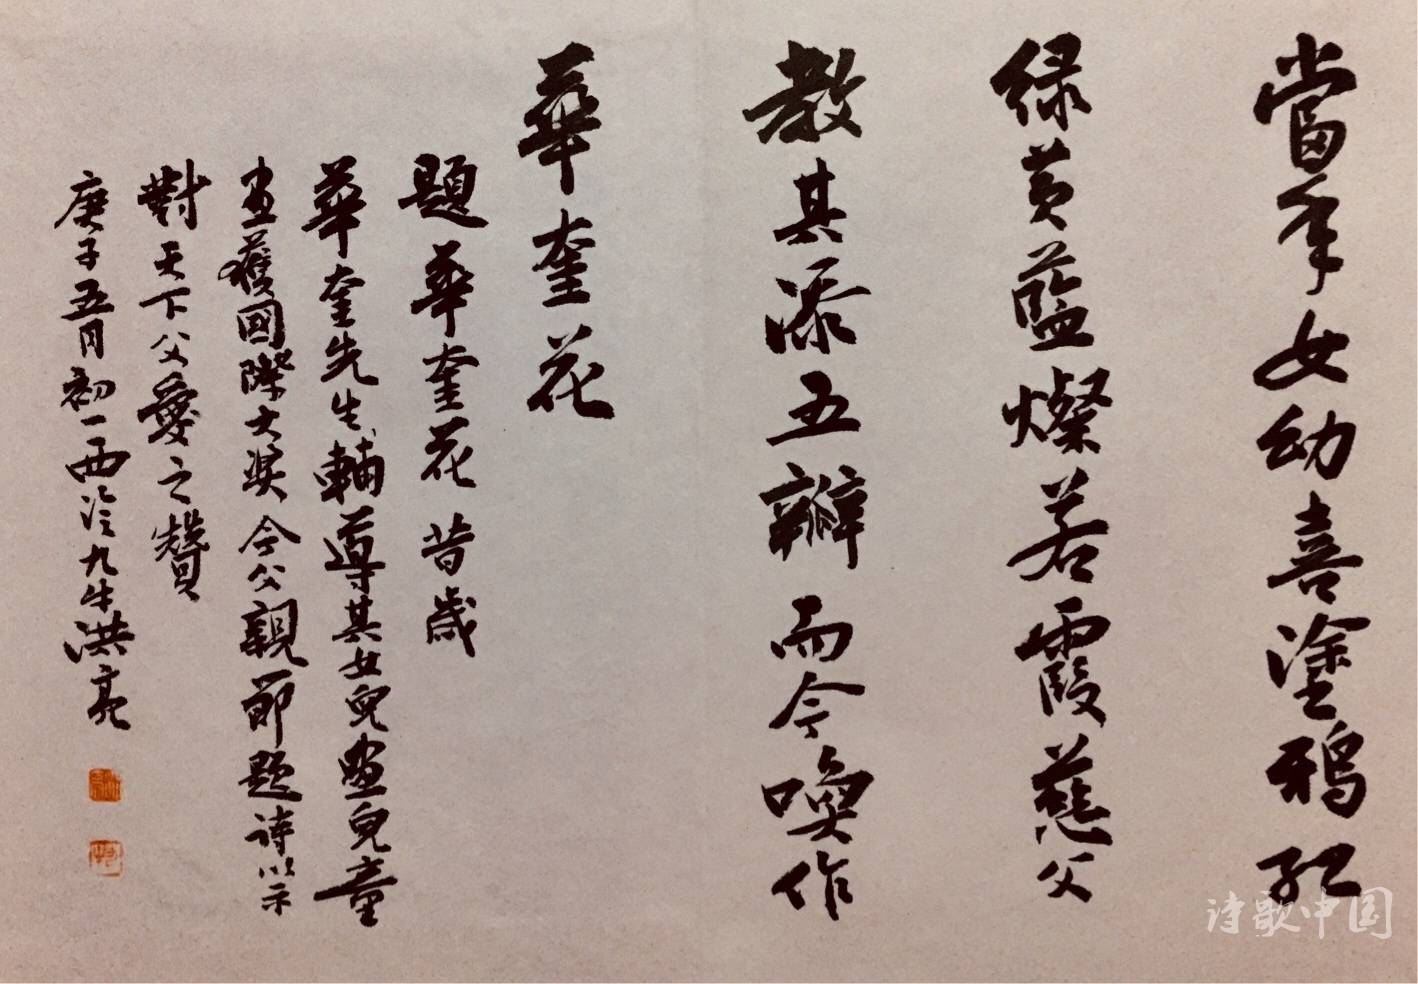 當年女幼喜塗鴉紅
綠黃藍燦若霞慈父
教其添五瓣而今喚作
華奎花
題華奎花 昔歲
華奎先生輔導其女兒畫兒童
畫獲國際大奖今父親節題詩以示
對天下父愛之贊
庚子五月初一西泠九牛洪亮
诗歌中国